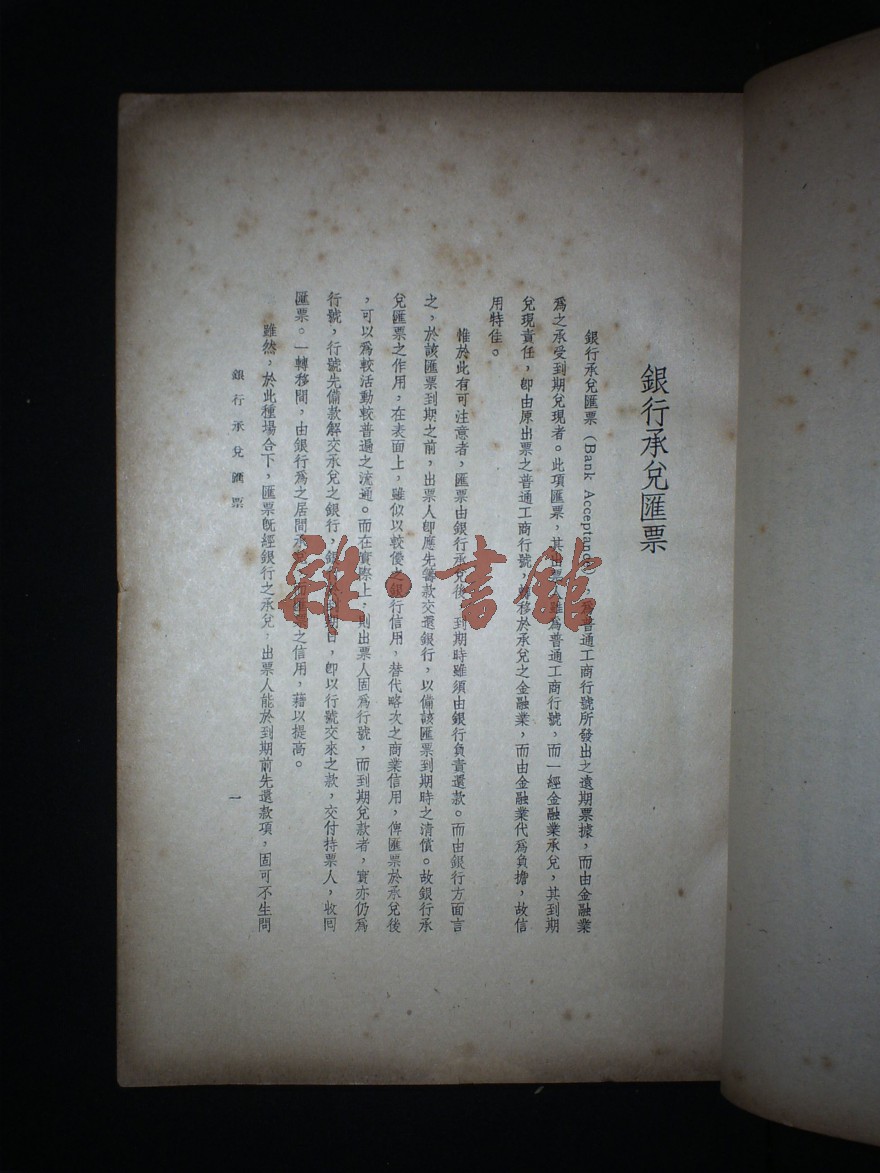 銀行承兌匯票
銀行承兌匯票（Bank Acceptance），為普通工商行號所發出之遠期票據，而由金融業
爲之承受到期兌現者。此項匯票，其出票人雖爲普通工商行號，而一經金融業承兌，其到期
兌現責任，卽由原出票之普通工商行號，轉移於承兌之金融業，而由金融業代爲負擔，故信
用特佳。
惟於此有可注意者，匯票由銀行承兌後，到期時雖須由銀行負責還款。而由銀行方面言
之，於該匯票到期之前，出票人卽應先籌款交還銀行，以備該匯票到期時之清償。故銀行承
兌匯票之作用，在表面上，雖似以較優之銀行信用，替代略次之商業信用，俾匯票於承兌後
，可以爲較活動較普遍之流通。而在實際上，則出票人固爲行號，而到期兌款者，實亦仍爲
行號，行號先備款解交承兌之銀行，銀行到期日，卽以行號交來之款，交付持票人，收回
匯票。一轉移間，由銀行爲之居間承兌，而匯票之信用，藉以提高。
雖然，於此種場合下，匯票旣經銀行之承兌，出票人能於到期前先還款項，固可不生問
銀行承兌匯票
一
雜·書館